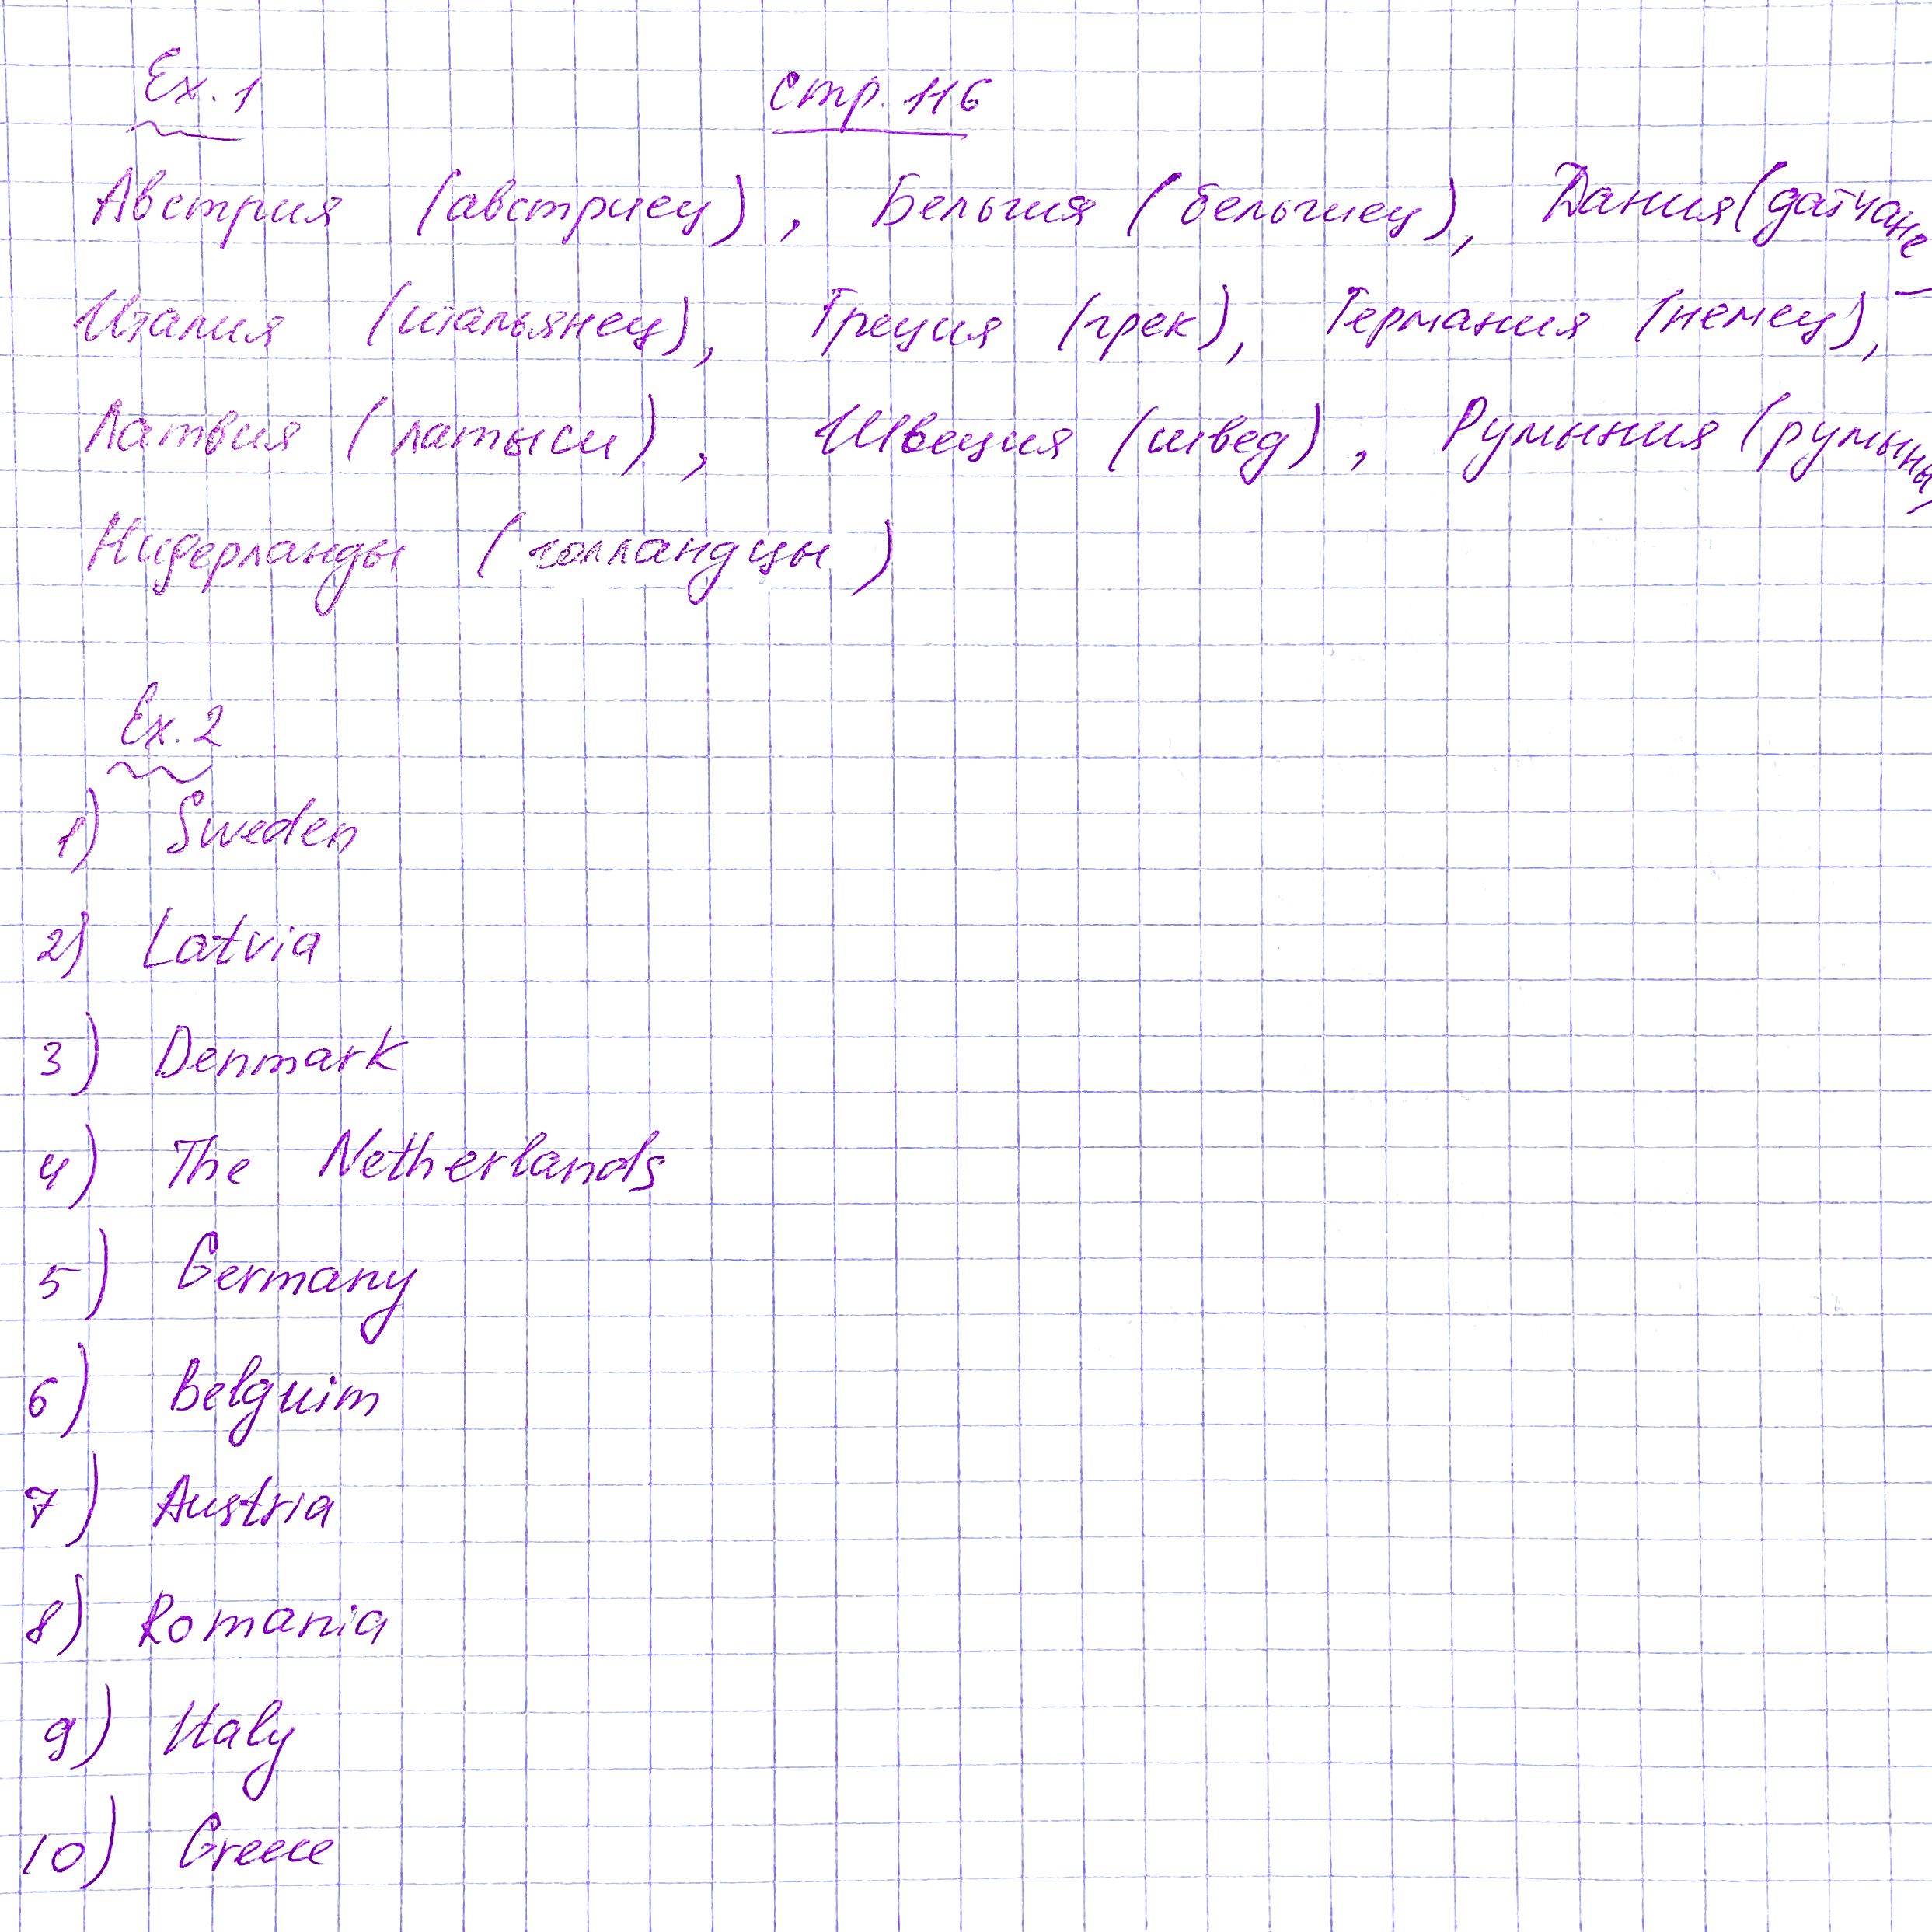 Ex. 1 стр. 116
Австрия (австриец), Бельгия (бельгиец), Дания (датчане)
Италия (итальянец), Греция (грек), Германия (немец),
Латвия (латыши), Швеция (швед), Румыния (румыны)
Нидерланды (голландцы)
Ex. 2
1) Sweden
2) Latvia
3) Denmark
4) The Netherlands
5) Germany
6) Belguim
7) Austria
8) Romania
9) Italy
10) Greece